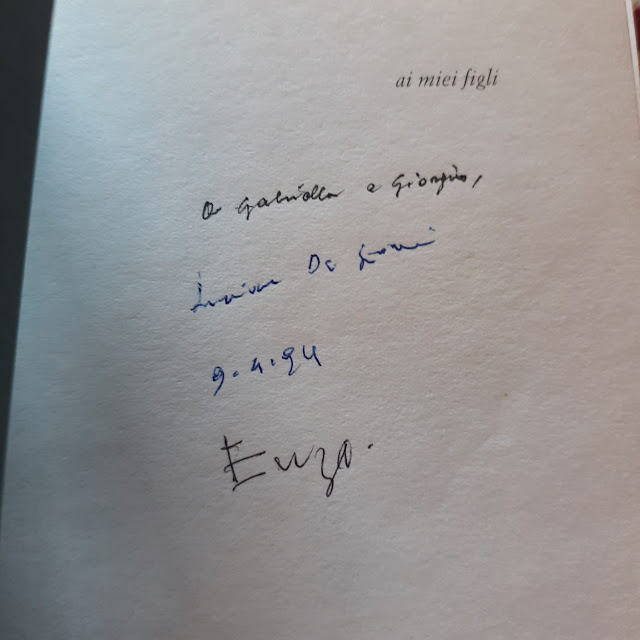 ai miei figli
a Gabriella e Giorgio,
De
9.4.94
Enzo.